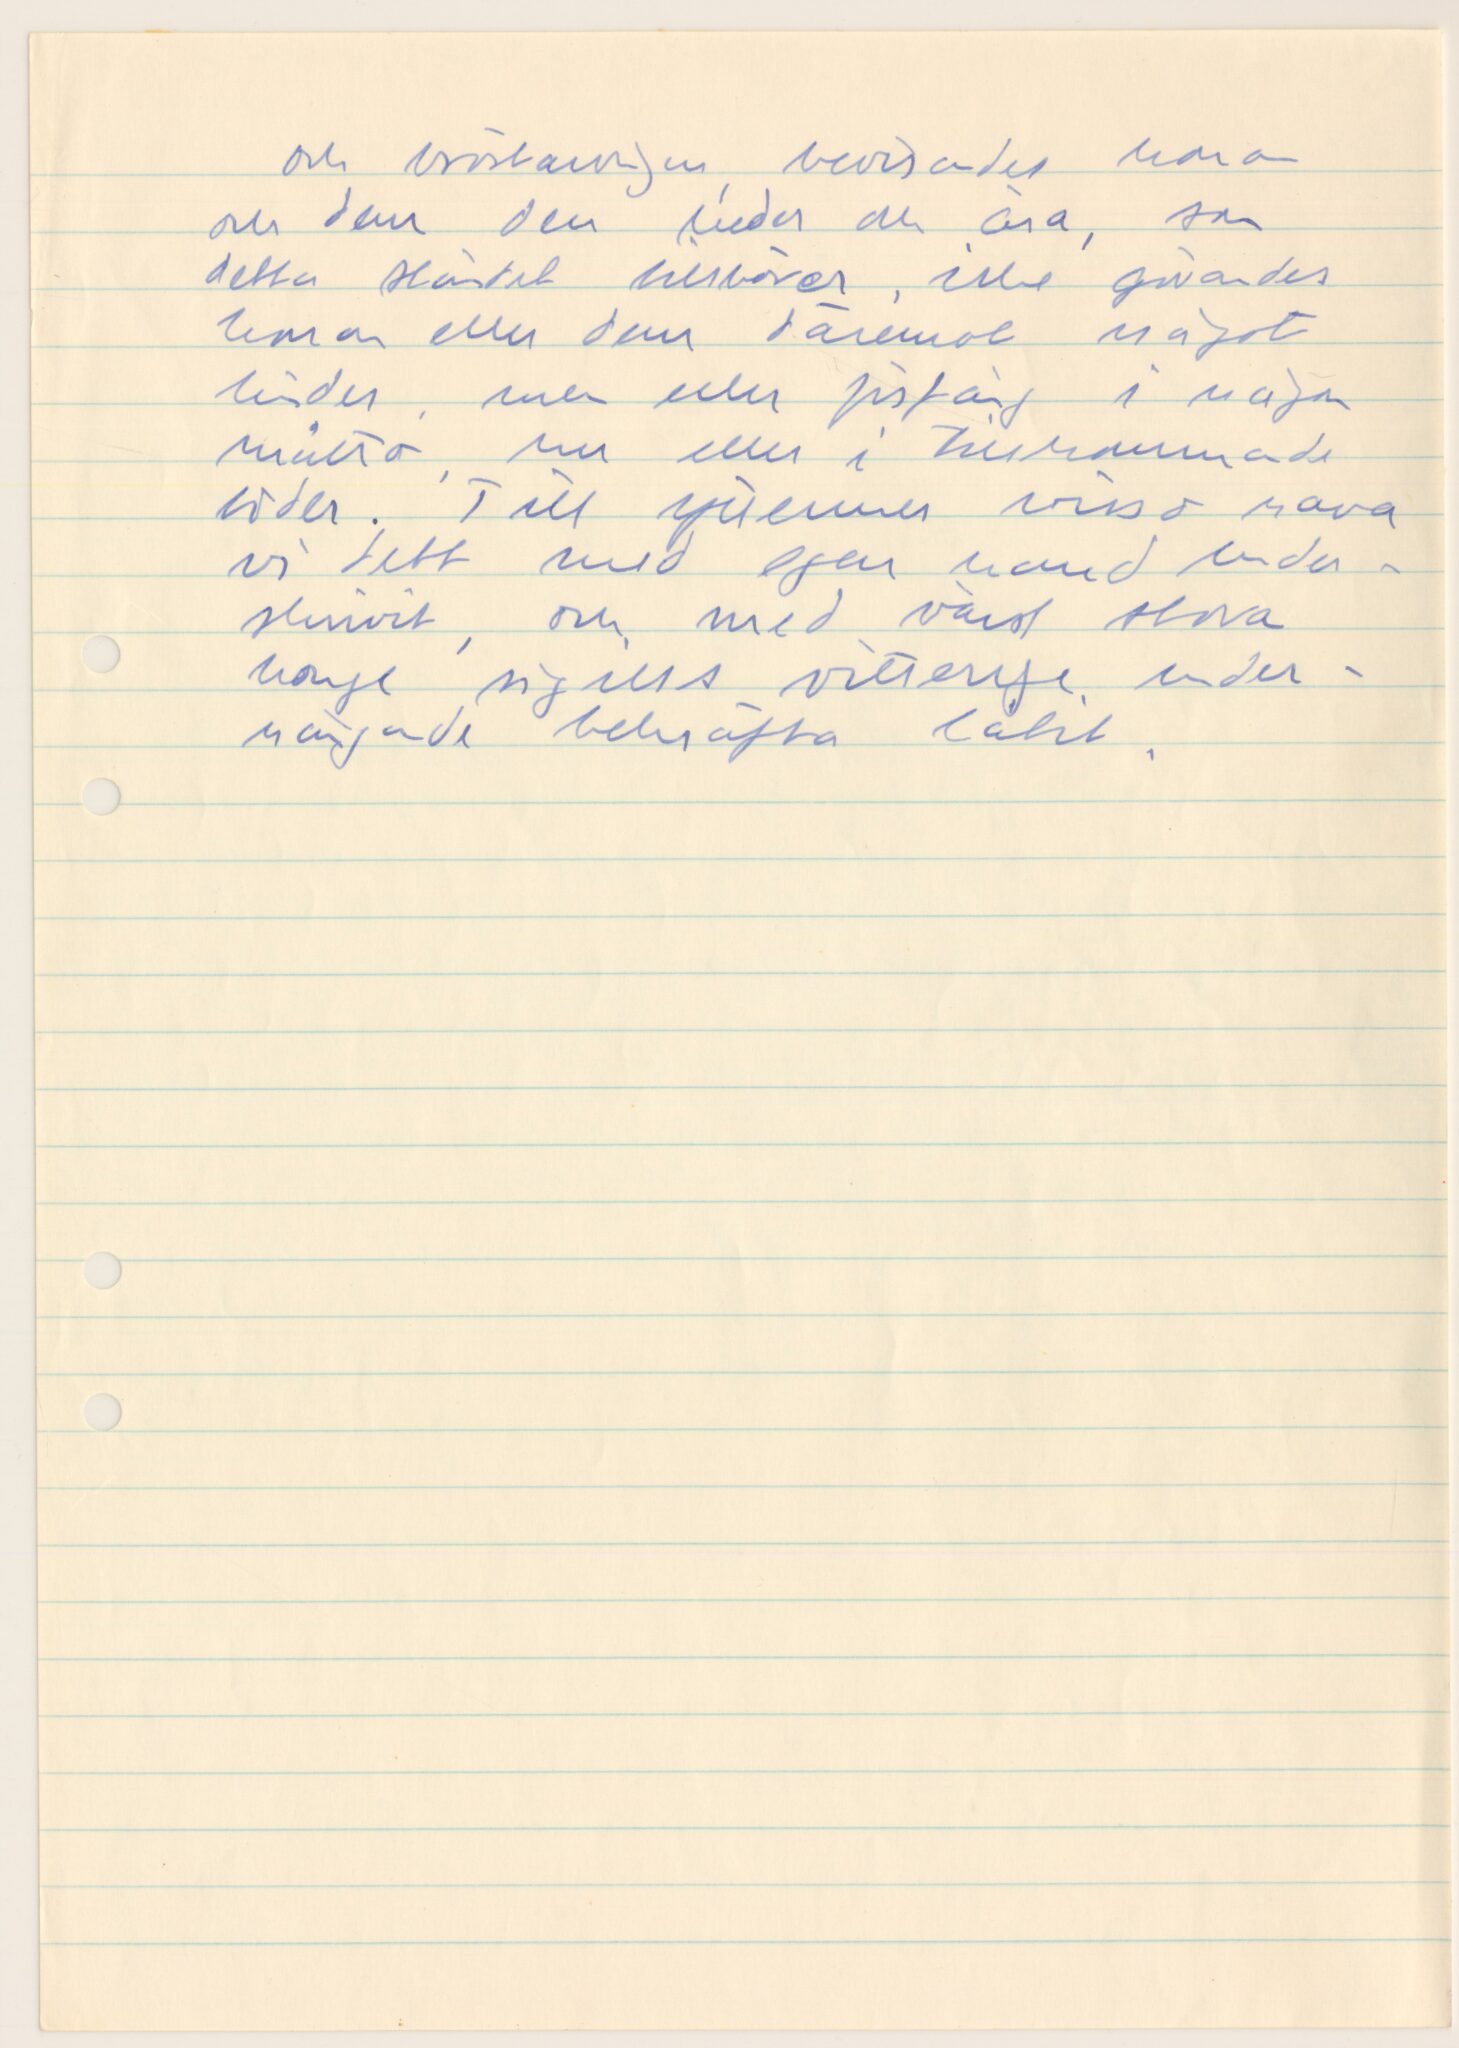 och bröstarvingar, bevisandes honom
och dem den heder och ära, som
detta ståndet tillhörer, icke görandes
honom eller dem däremot något
hinder, men eller förfång i någon
måtto, nu eller i tillkommande
tider. Till yttermer visso hava
vi dett med egen hand under-
skrivit, och med vårt stora
konge sigills vitterlige under-
hängande bekräfta låtit.